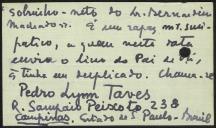 sobrinho-neto do Dr. Bernardino
Machado. É um rapaz mt. sim-
pático, a quem nesta data
envio o livro do Pai de
q tinha em duplicado. Chama-se
Pedro Lynn Taves
R. Sampaio Peixoto, 238
Campinas, Estado de S. Paulo - Brasil